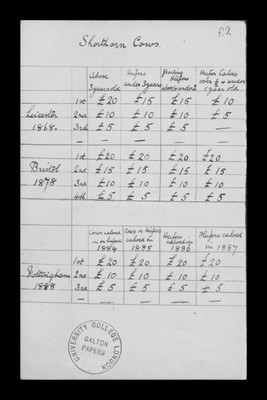 p2
Shorthorn Cows.
Above 3 years old | Heifers under 3 years | Yearling Heifers | Heifer Calves over 6 & under 1 year old
Leicester 1868.
1st £20 £15 £15 £10
2nd £10 £10 £10 £5
3rd £5 £5 £5 —
— — — —
Bristol 1878
1st £20 £20 £20 £20
2nd £15 £15 £15 £15
3rd £10 £10 £10 £10
4th £5 £5 £5 £5
Cows calved in or before 1884 | Cows or Heifers calved in 1885 | Heifers calved in 1886 | Heifers calved in 1887
Nottingham 1888
1st £20 £20 £20 £20
2nd £10 £10 £10 £10
3rd £5 £5 £5 £5
— — — — —
UNIVERSITY COLLEGE LONDON
GALTON PAPERS